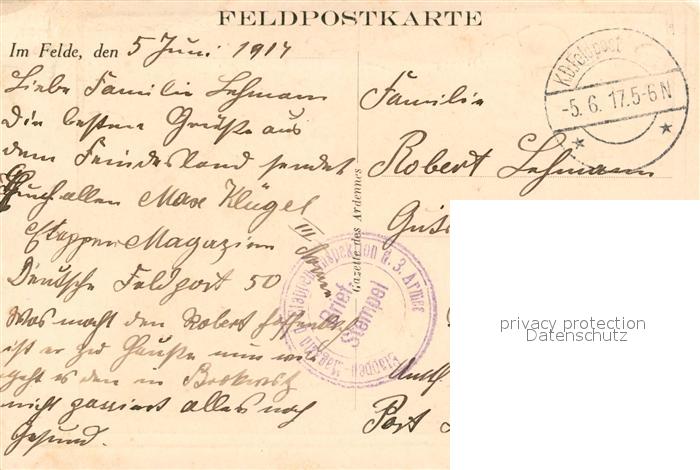 FELDPOSTKARTE
Im Felde, den 5 Juni 1917
Liebe Familie Lehmann
Die besten Grüße aus
dem Feindesland sendet
Euch allen Max Klügel
Etappen Magazin
III Armee
Deutsche Feldpost 50
Was macht den Robert hoffentlich
ist er zu Hauße nun wie
geht es den in
nicht passiert alles noch
Gesund.
Gazette des Ardennes
K.D.Feldpost
-5.6.17.5-6N
Familie
Robert Lehmann
Amtl
Post
Brief
Stempel
Etappen Magazin
Inspektion d. 3. Armee
privacy protection
Datenschutz